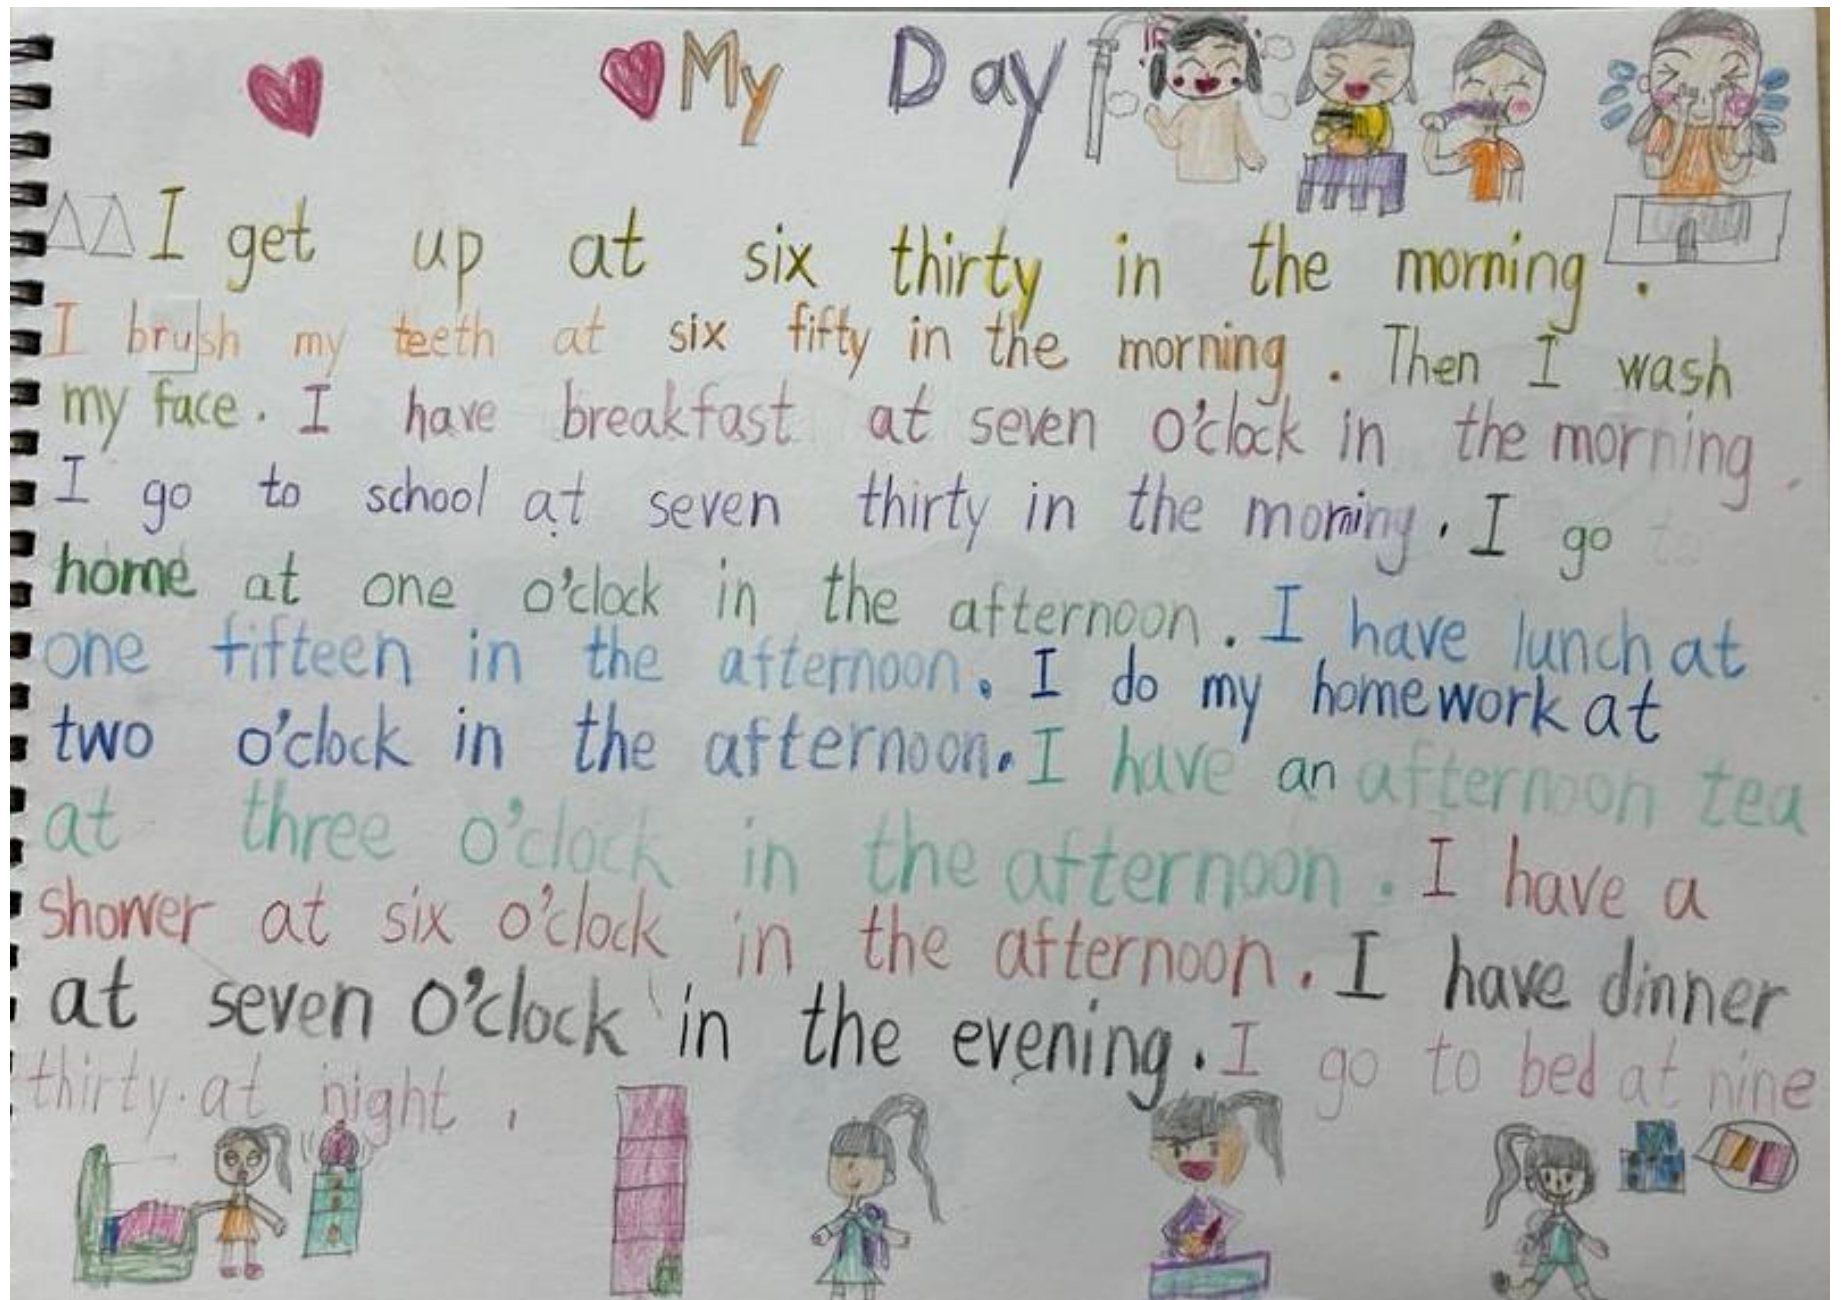 My Day
I get up at six thirty in the morning.
I brush my teeth at six fifty in the morning. Then I wash
my face. I have breakfast at seven o'clock in the morning.
I go to school at seven thirty in the morning. I go to
home at one o'clock in the afternoon. I have lunch at
one fifteen in the afternoon. I do my homework at
two o'clock in the afternoon. I have an afternoon tea
at three o'clock in the afternoon. I have a
shower at six o'clock in the afternoon. I have dinner
at seven o'clock in the evening. I go to bed at nine
thirty at night.